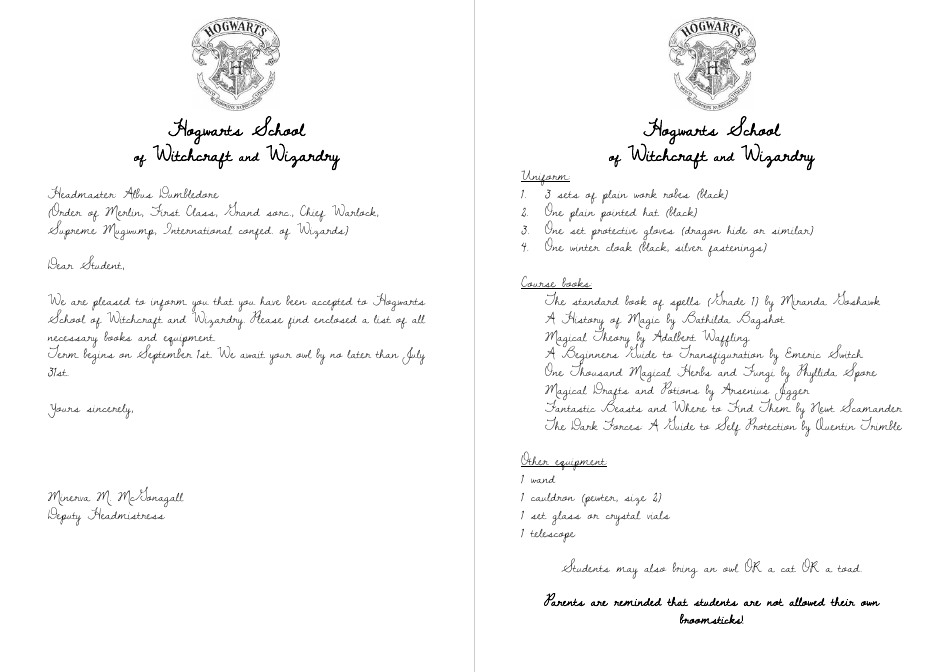 HOGWARTS
H
Hogwarts School
of Witchcraft and Wizardry
Headmaster: Albus Dumbledore
(Order of Merlin, First Class, Grand sorc., Chief Warlock,
Supreme Mugwump, International confed. of Wizards)
Dear Student,
We are pleased to inform you that you have been accepted to Hogwarts
School of Witchcraft and Wizardry. Please find enclosed a list of all
necessary books and equipment.
Term begins on September 1st. We await your owl by no later than July
31st.
Yours sincerely,
Minerva M. McGonagall
Deputy Headmistress
HOGWARTS
H
Hogwarts School
of Witchcraft and Wizardry
Uniform:
1. 3 sets of plain work robes (black)
2. One plain pointed hat (black)
3. One set protective gloves (dragon hide or similar)
4. One winter cloak (black, silver fastenings)
Course books:
The standard book of spells (Grade 1) by Miranda Goshawk
A History of Magic by Bathilda Bagshot
Magical Theory by Adalbert Waffling
A Beginners Guide to Transfiguration by Emeric Switch
One Thousand Magical Herbs and Fungi by Phyllida Spore
Magical Drafts and Potions by Arsenius Jigger
Fantastic Beasts and Where to Find Them by Newt Scamander
The Dark Forces: A Guide to Self Protection by Quentin Trimble
Other equipment:
1 wand
1 cauldron (pewter, size 2)
1 set glass or crystal vials
1 telescope
Students may also bring an owl OR a cat OR a toad.
Parents are reminded that students are not allowed their own
broomsticks!